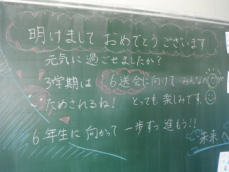 明けまして おめでとうございます
元気に過ごせましたか?
3学期は 6送会に向けて みんなの
ためされるね! とっても楽しみです
6年生に向かって 一歩ずつ進もう!!
未来へ